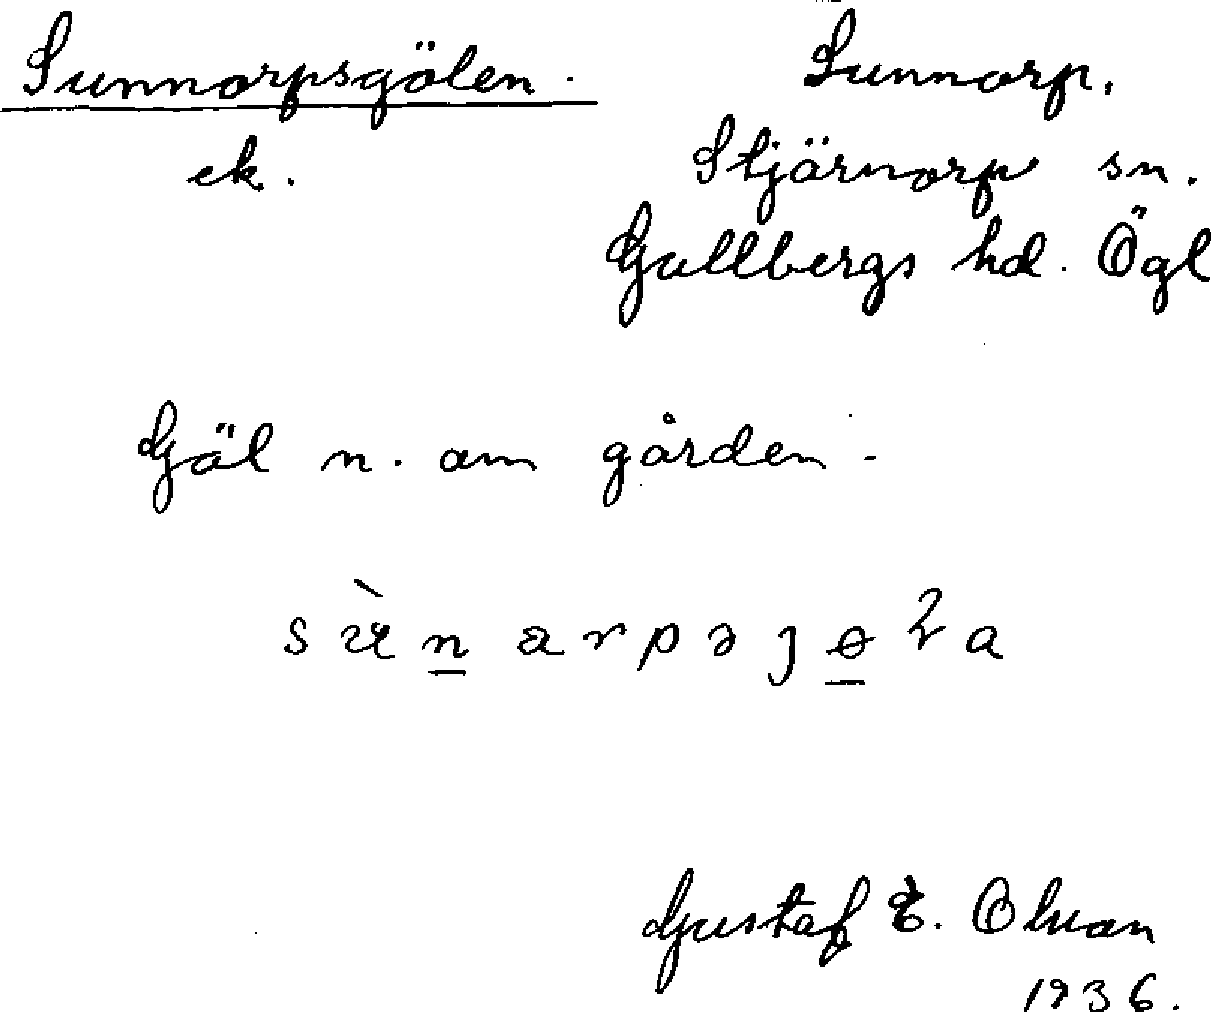 Sunnorpsgölen.
ek.
Sunnorp.
Stjärnorp sn.
Gullbergs hd. Ögl
Göl n. om gården.
Gustaf E. Olsson
1936.